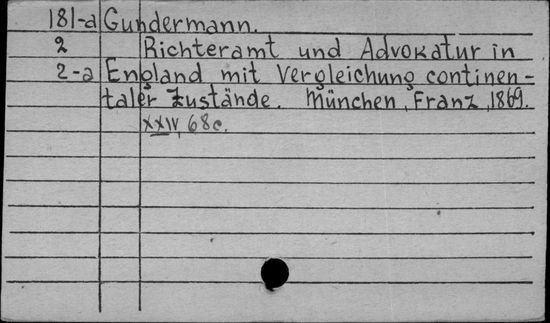 181-a Gundermann.
2 Richteramt und Advokatur in
2-a England mit Vergleichung continen-
taler Zustände. München, Franz, 1869.
XXIV, 68 c.